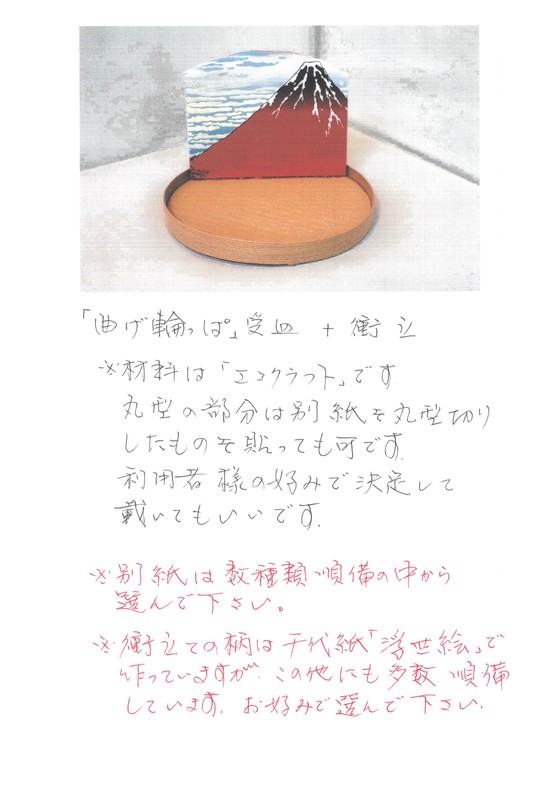 「曲げ輪っぱ」受皿 + 衝立
※材料は「エコクラフト」です
丸型の部分は別紙を丸型切り
したものを貼っても可です。
利用者様の好みで決定して
戴いてもいいです。
※別紙は数種類順備の中から
選んで下さい。
※衝立ての柄は千代紙「浮世絵」で
作っていますが、この他にも多数順備
しています。お好みで選んで下さい。